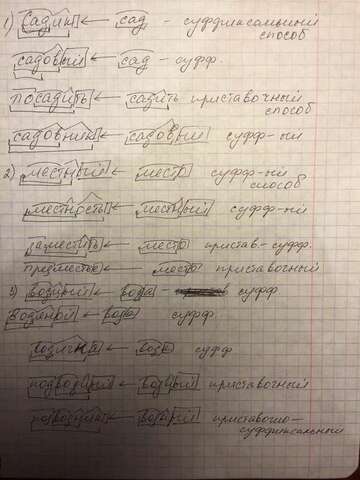 1) садик ← сад - суффиксальный
способ
садовый ← сад - суфф.
посадить ← садить приставочный
способ
садовник ← садовый суфф-ый
2) местный ← место суфф-ый
способ
местность ← местный суфф-ый
заместить ← место пристав-суфф.
предместье ← место приставочный
3) ← вода - суфф
водяной ← вода суфф.
← вода суфф
← приставочный
← приставочно-
суффиксальный